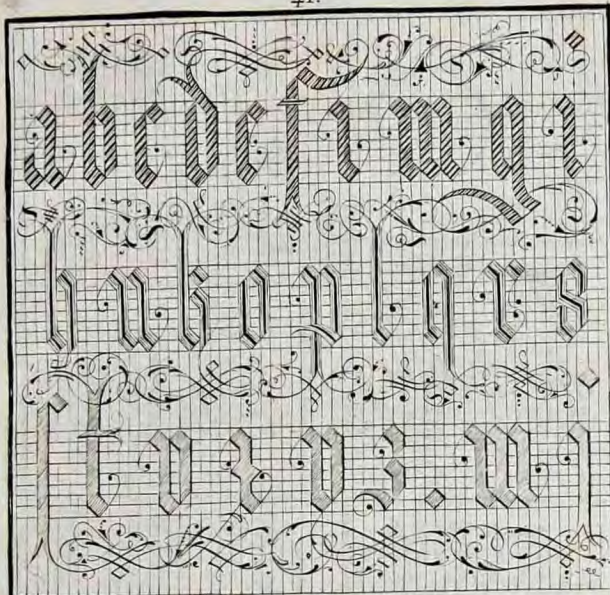 41.
a b c d e f i m g i
h n k o p l q r s
ſ t v x v z . m j